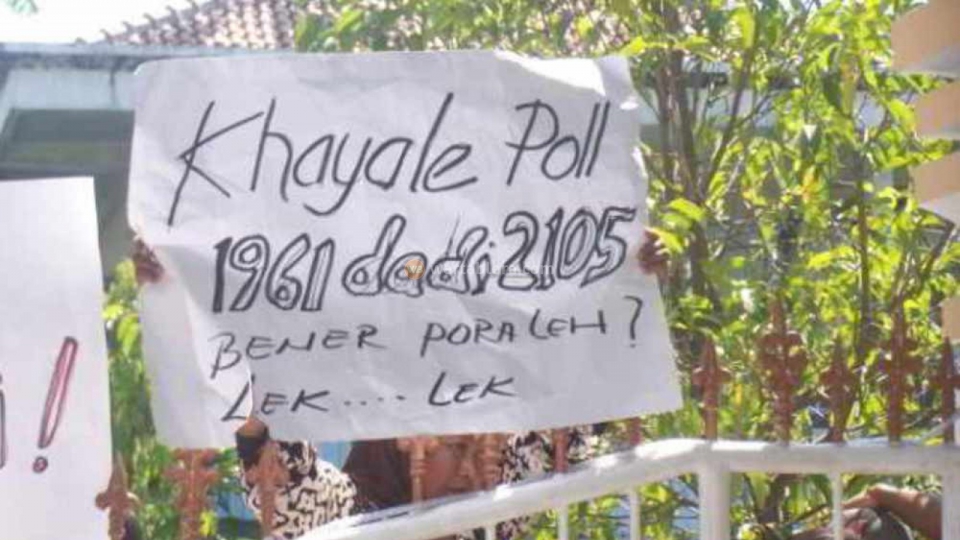 Khayale Poll
1961 dadi 2105
BENER PORA LEH?
LEK.... LEK
!